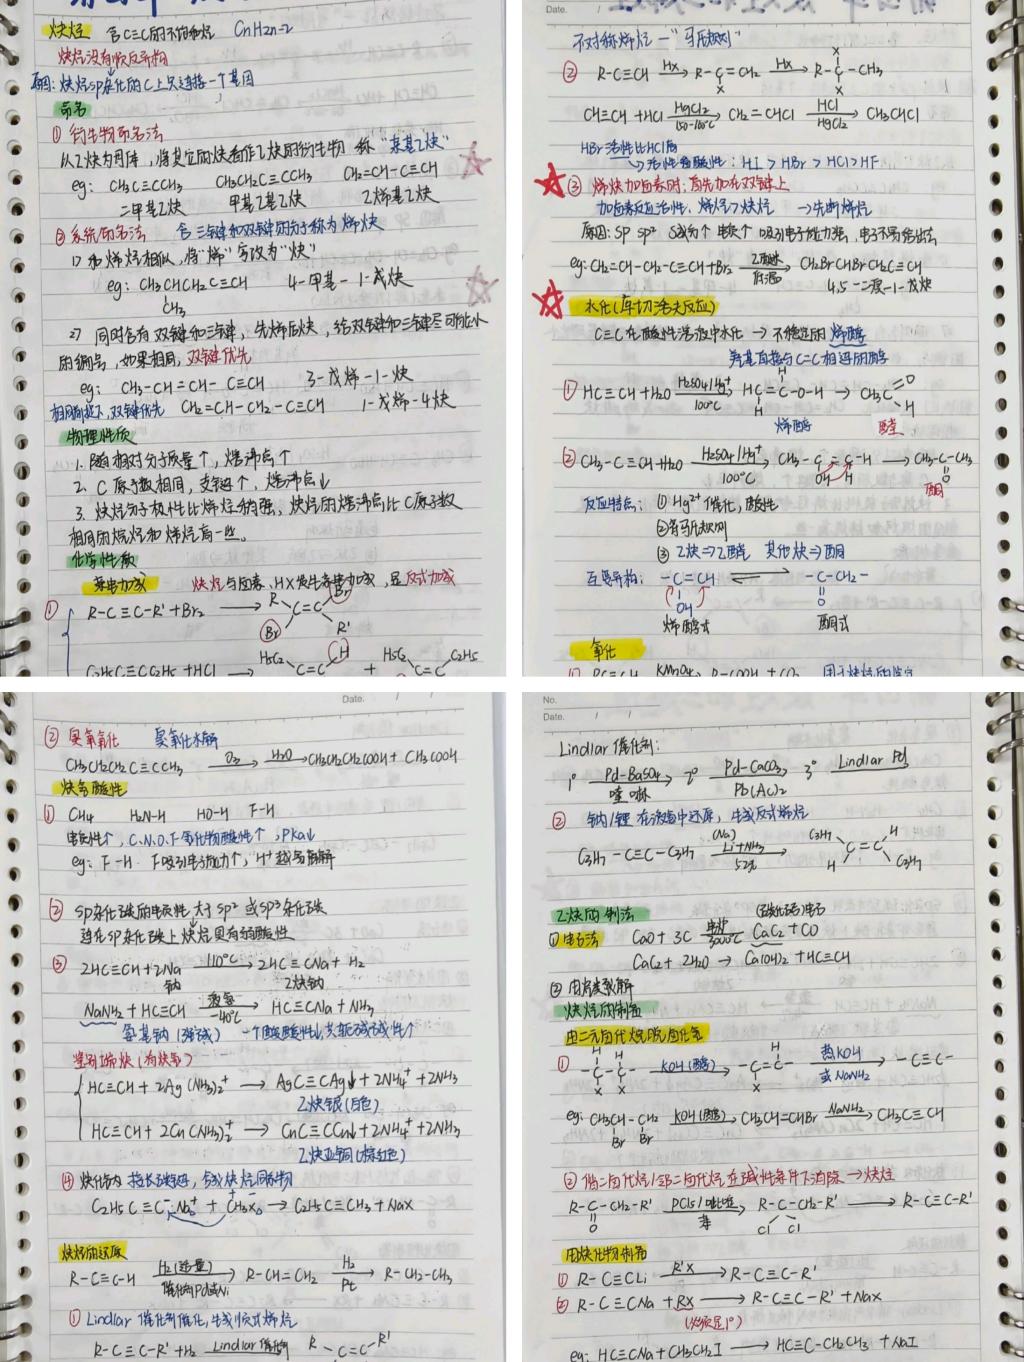 炔烃 含C≡C的不饱和烃 CnH2n-2
炔烃没有顺反异构
原因: 炔烃SP杂化的C上只连接一个基团
命名
① 衍生物命名法
从乙炔为母体，将其它的炔看作乙炔的衍生物 称"某基乙炔"
eg: CH3C≡CCH3 CH3CH2C≡CCH3 CH2=CH-C≡CH
二甲基乙炔 甲基乙基乙炔 乙烯基乙炔
② 系统命名法 含三键和双键的分子称为烯炔
1) 和烯烃相似，将"烯"字改为"炔"
eg: CH3CHCH2C≡CH 4-甲基-1-戊炔
CH3
2) 同时含有双键和三键，先烯后炔，给双键和三键尽可能小
的编号，如果相同，双键优先
eg: CH3-CH=CH-C≡CH 3-戊烯-1-炔
双键优先 CH2=CH-CH2-C≡CH 1-戊烯-4炔
物理性质
1. 随相对分子质量↑，熔沸点↑
2. C原子数相同，支链↑，熔沸点↓
3. 炔烃分子极性比烯烃稍强，炔烃的熔沸点比C原子数
相同的烷烃和烯烃高一些。
化学性质
亲电加成 炔烃与卤素，HX发生亲电加成，呈反式加成
① R-C≡C-R'+Br2 → R Br C=C Br R'
C2H5C≡CC2H5+HCl → H5C2 C=C H + H5C2 C=C C2H5
Date.
不对称烯烃—"马氏规则"
② R-C≡CH HX→ R-C=CH2 HX→ R-C-CH3
X X X
CH≡CH+HCl HgCl2 150-160℃→ CH2=CHCl HCl HgCl2→ CH3CHCl
HBr活性比HCl高
活性看酸性: HI>HBr>HCl>HF
③ 烯炔加卤素时: 首先加在双键上
加卤素反应活性: 烯烃>炔烃 →先断烯烃
原因: SP SP² S成分↑ 电负↑ 吸引电子能力强，电子不易给出去
eg: CH2=CH-CH2-C≡CH+Br2 低温→ CH2BrCHBrCH2C≡CH
4,5-二溴-1-戊炔
水化(库切洛夫反应)
C≡C在酸性溶液中水化 → 不稳定的烯醇
羟基直接与C=C相连的醇
① HC≡CH+H2O H2SO4/Hg+ 100℃→ HC=C-O-H → CH3C O H
H H
烯醇 醛
② CH3-C≡CH+H2O H2SO4/Hg+ 100℃→ CH3-C=C-H → CH3-C-CH3
OH H O
酮
反应特点: ① Hg2+催化，酸性
②符马氏规则
③ 乙炔⇒乙醛 其他炔⇒酮
互变异构: -C=CH ⇌ -C-CH2-
OH O
烯醇式 酮式
氧化
① RC≡CH KMnO4→ R-COOH+CO2 用于炔烃的鉴定
Date. / /
② 臭氧氧化 臭氧化水解
CH3CH2CH2C≡CCH3 O3→ H2O→ CH3CH2CH2COOH+CH3COOH
炔氢酸性
① CH4 H2N-H HO-H F-H
电负性↑, C.N.O.F氢化物酸性↑, pKa↓
eg: F-H F吸引电子能力↑, H+越易解
② SP杂化碳的电负性大于SP²或SP³杂化碳
连在SP杂化碳上炔烃具有弱酸性
③ 2HC≡CH+2Na 110℃→ 2HC≡CNa+H2
钠 乙炔钠
NaNH2+HC≡CH 液氨 -40℃→ HC≡CNa+NH3
氨基钠(强碱) 一个酸酸性↓,共轭碱碱性↑
鉴别端炔(有炔氢)
HC≡CH+2Ag(NH3)2+ → AgC≡CAg↓+2NH4++2NH3
乙炔银(白色)
HC≡CH+2Cu(NH3)2+ → CuC≡CCu↓+2NH4++2NH3
乙炔亚铜(棕红色)
④ 炔化钠 接长碳链，合成炔烃同系物
C2H5C≡C-Na++CH3X → C2H5C≡CCH3+NaX
炔烃的还原
R-C≡C-H H2(过量) 催化剂Pd或Ni→ R-CH=CH2 H2 Pt→ R-CH2-CH3
① Lindlar催化剂催化,生成顺式烯烃
R-C≡C-R'+H2 Lindlar催化剂→ R C=C R'
No.
Date. / /
Lindlar催化剂:
1° Pd-BaSO4 喹啉 2° Pd-CaCO3 Pb(Ac)2 3° Lindlar Pd
② 钠/锂在液氨中还原，生成反式烯烃
C3H7-C≡C-C3H7 (Na) Li+NH3 52%→ C3H7 H C=C H C3H7
乙炔的制法
(碳化钙)电石
①电石法 CaO+3C 电炉 3000℃→ CaC2+CO
CaC2+2H2O → Ca(OH)2+HC≡CH
② 甲烷裂解
炔烃的制备
由二元卤代烷脱卤化氢
① H H -C-C- X X KOH(醇)→ H -C=C- X 热KOH 或NaNH2→ -C≡C-
eg: CH3CH-CH2 KOH(醇)→ CH3CH=CHBr NaNH2→ CH3C≡CH
Br Br
② 偕二卤代烃/邻二卤代烃在碱性条件下消除 → 炔烃
R-C-CH2-R' PCl5/吡啶 苯→ R-C-CH2-R' → R-C≡C-R'
O Cl Cl
用炔化物制备
① R-C≡CLi R'X→ R-C≡C-R'
② R-C≡CNa+RX → R-C≡C-R'+NaX
(必须是1°)
eg: HC≡CNa+CH3CH2I → HC≡C-CH2CH3+NaI